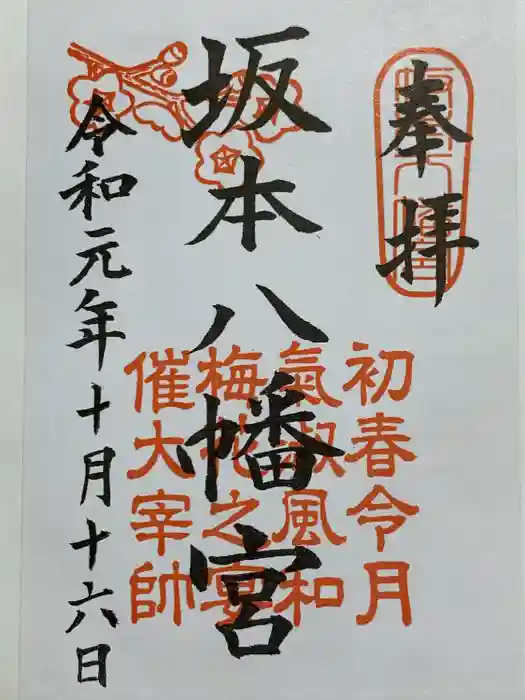 奉拝
坂本八幡宮
初春令月
氣淑風和
梅花之宴
催大宰帥
令和元年十月十六日